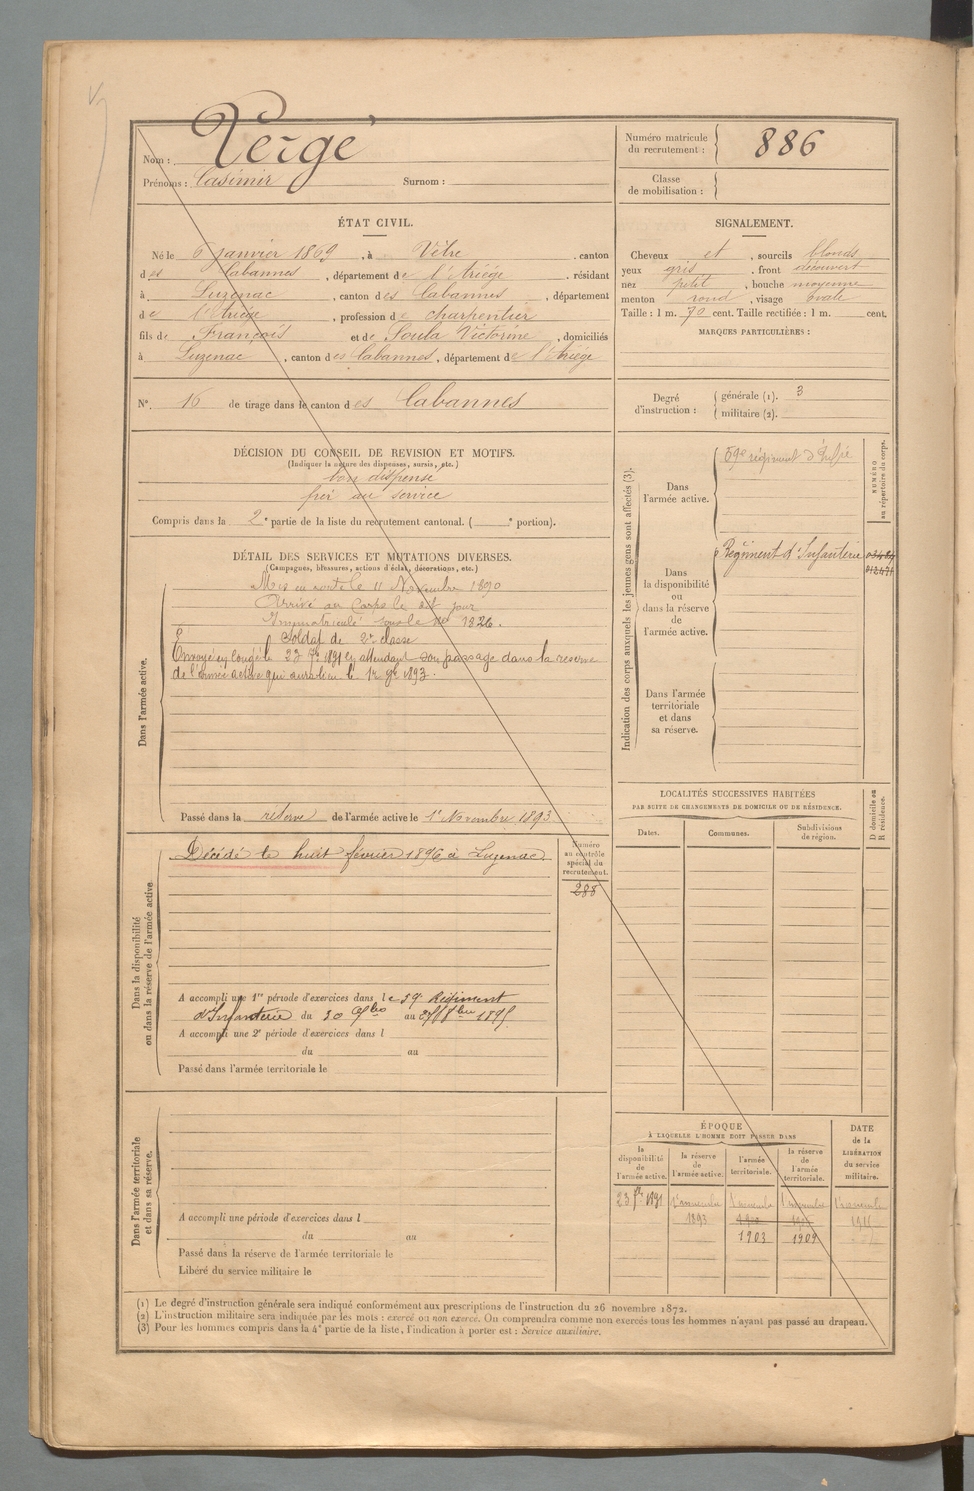 Nom : Vergé
Prénoms : Casimir Surnom :
Numéro matricule
du recrutement : 886
Classe
de mobilisation :
ÉTAT CIVIL.
Né le 6 janvier 1869, à Vèbre, canton
des Cabannes, département de l'Ariège, résidant
à Luzenac, canton des Cabannes, département
de l'Ariège, profession de charpentier
fils de François et de Soula Victorine, domiciliés
à Luzenac, canton des Cabannes, département de l'Ariège
SIGNALEMENT.
Cheveux et, sourcils blonds
yeux gris, front découvert
nez petit, bouche moyenne
menton rond, visage ovale
Taille : 1 m. 70 cent. Taille rectifiée : 1 m. cent.
MARQUES PARTICULIÈRES :
N°. 16 de tirage dans le canton des Cabannes
Degré
d'instruction :
générale (1). 3
militaire (2).
DÉCISION DU CONSEIL DE REVISION ET MOTIFS.
(Indiquer la nature des dispenses, sursis, etc.)
bon dispensé
au service
Compris dans la 2e partie de la liste du recrutement cantonal. ( e portion).
DÉTAIL DES SERVICES ET MUTATIONS DIVERSES.
(Campagnes, blessures, actions d'éclat, décorations, etc.)
Dans l'armée active.
Mis en route le 11 Novembre 1890
Arrivé au Corps le dit jour
Immatriculé sous le No 1826.
Soldat de 2e classe
Envoyé en congé le 23 7bre 1891 en attendant son passage dans la réserve
de l'armée active qui aura lieu le 1er 9bre 1893.
Passé dans la réserve de l'armée active le 1er Novembre 1893
Indication des corps auxquels les jeunes gens sont affectés (3).
NUMÉRO
au répertoire du corps.
Dans
l'armée active.
59e régiment d'Infie
Dans
la disponibilité
ou
dans la réserve
de
l'armée active.
Régiment d'Infanterie
Dans l'armée
territoriale
et dans
sa réserve.
LOCALITÉS SUCCESSIVES HABITÉES
PAR SUITE DE CHANGEMENTS DE DOMICILE OU DE RÉSIDENCE.
Dates.
Communes.
Subdivisions
de région.
D domicile ou
R résidence.
Dans la disponibilité
ou dans la réserve de l'armée active
Décédé le huit février 1896 à Luzenac
Numéro
au contrôle
spécial du
recrutement.
288
A accompli une 1re période d'exercices dans le 59e Régiment
d'Infanterie du 30 au 1895
A accompli une 2e période d'exercices dans l
du au
Passé dans l'armée territoriale le
Dans l'armée territoriale
et dans sa réserve.
A accompli une période d'exercices dans l
du au
Passé dans la réserve de l'armée territoriale le
Libéré du service militaire le
ÉPOQUE
À LAQUELLE L'HOMME DOIT PASSER DANS
DATE
de la
LIBÉRATION
du service
militaire.
la
disponibilité
de
l'armée active.
la réserve
de
l'armée active.
l'armée
territoriale.
la réserve
de
l'armée
territoriale.
23 7bre 1891
1er novembre
1893
1er novembre
1903
1er novembre
1909
1er novembre
(1) Le degré d'instruction générale sera indiqué conformément aux prescriptions de l'instruction du 26 novembre 1872.
(2) L'instruction militaire sera indiquée par les mots : exercé ou non exercé. On comprendra comme non exercés tous les hommes n'ayant pas passé au drapeau.
(3) Pour les hommes compris dans la 4e partie de la liste, l'indication à porter est : Service auxiliaire.